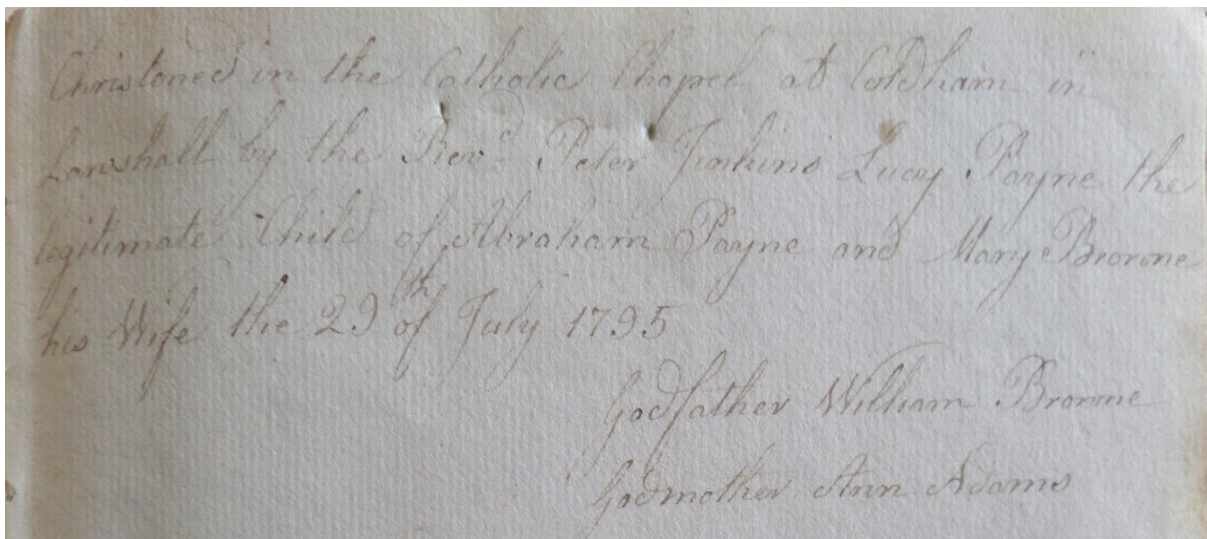 Christened in the Catholic Chapel at Coldham in
Lawshall by the Revd. Peter Jenkins Lucy Payne the
legitimate Child of Abraham Payne and Mary Browne
his Wife the 29th of July 1795
Godfather William Browne
Godmother Ann Adams